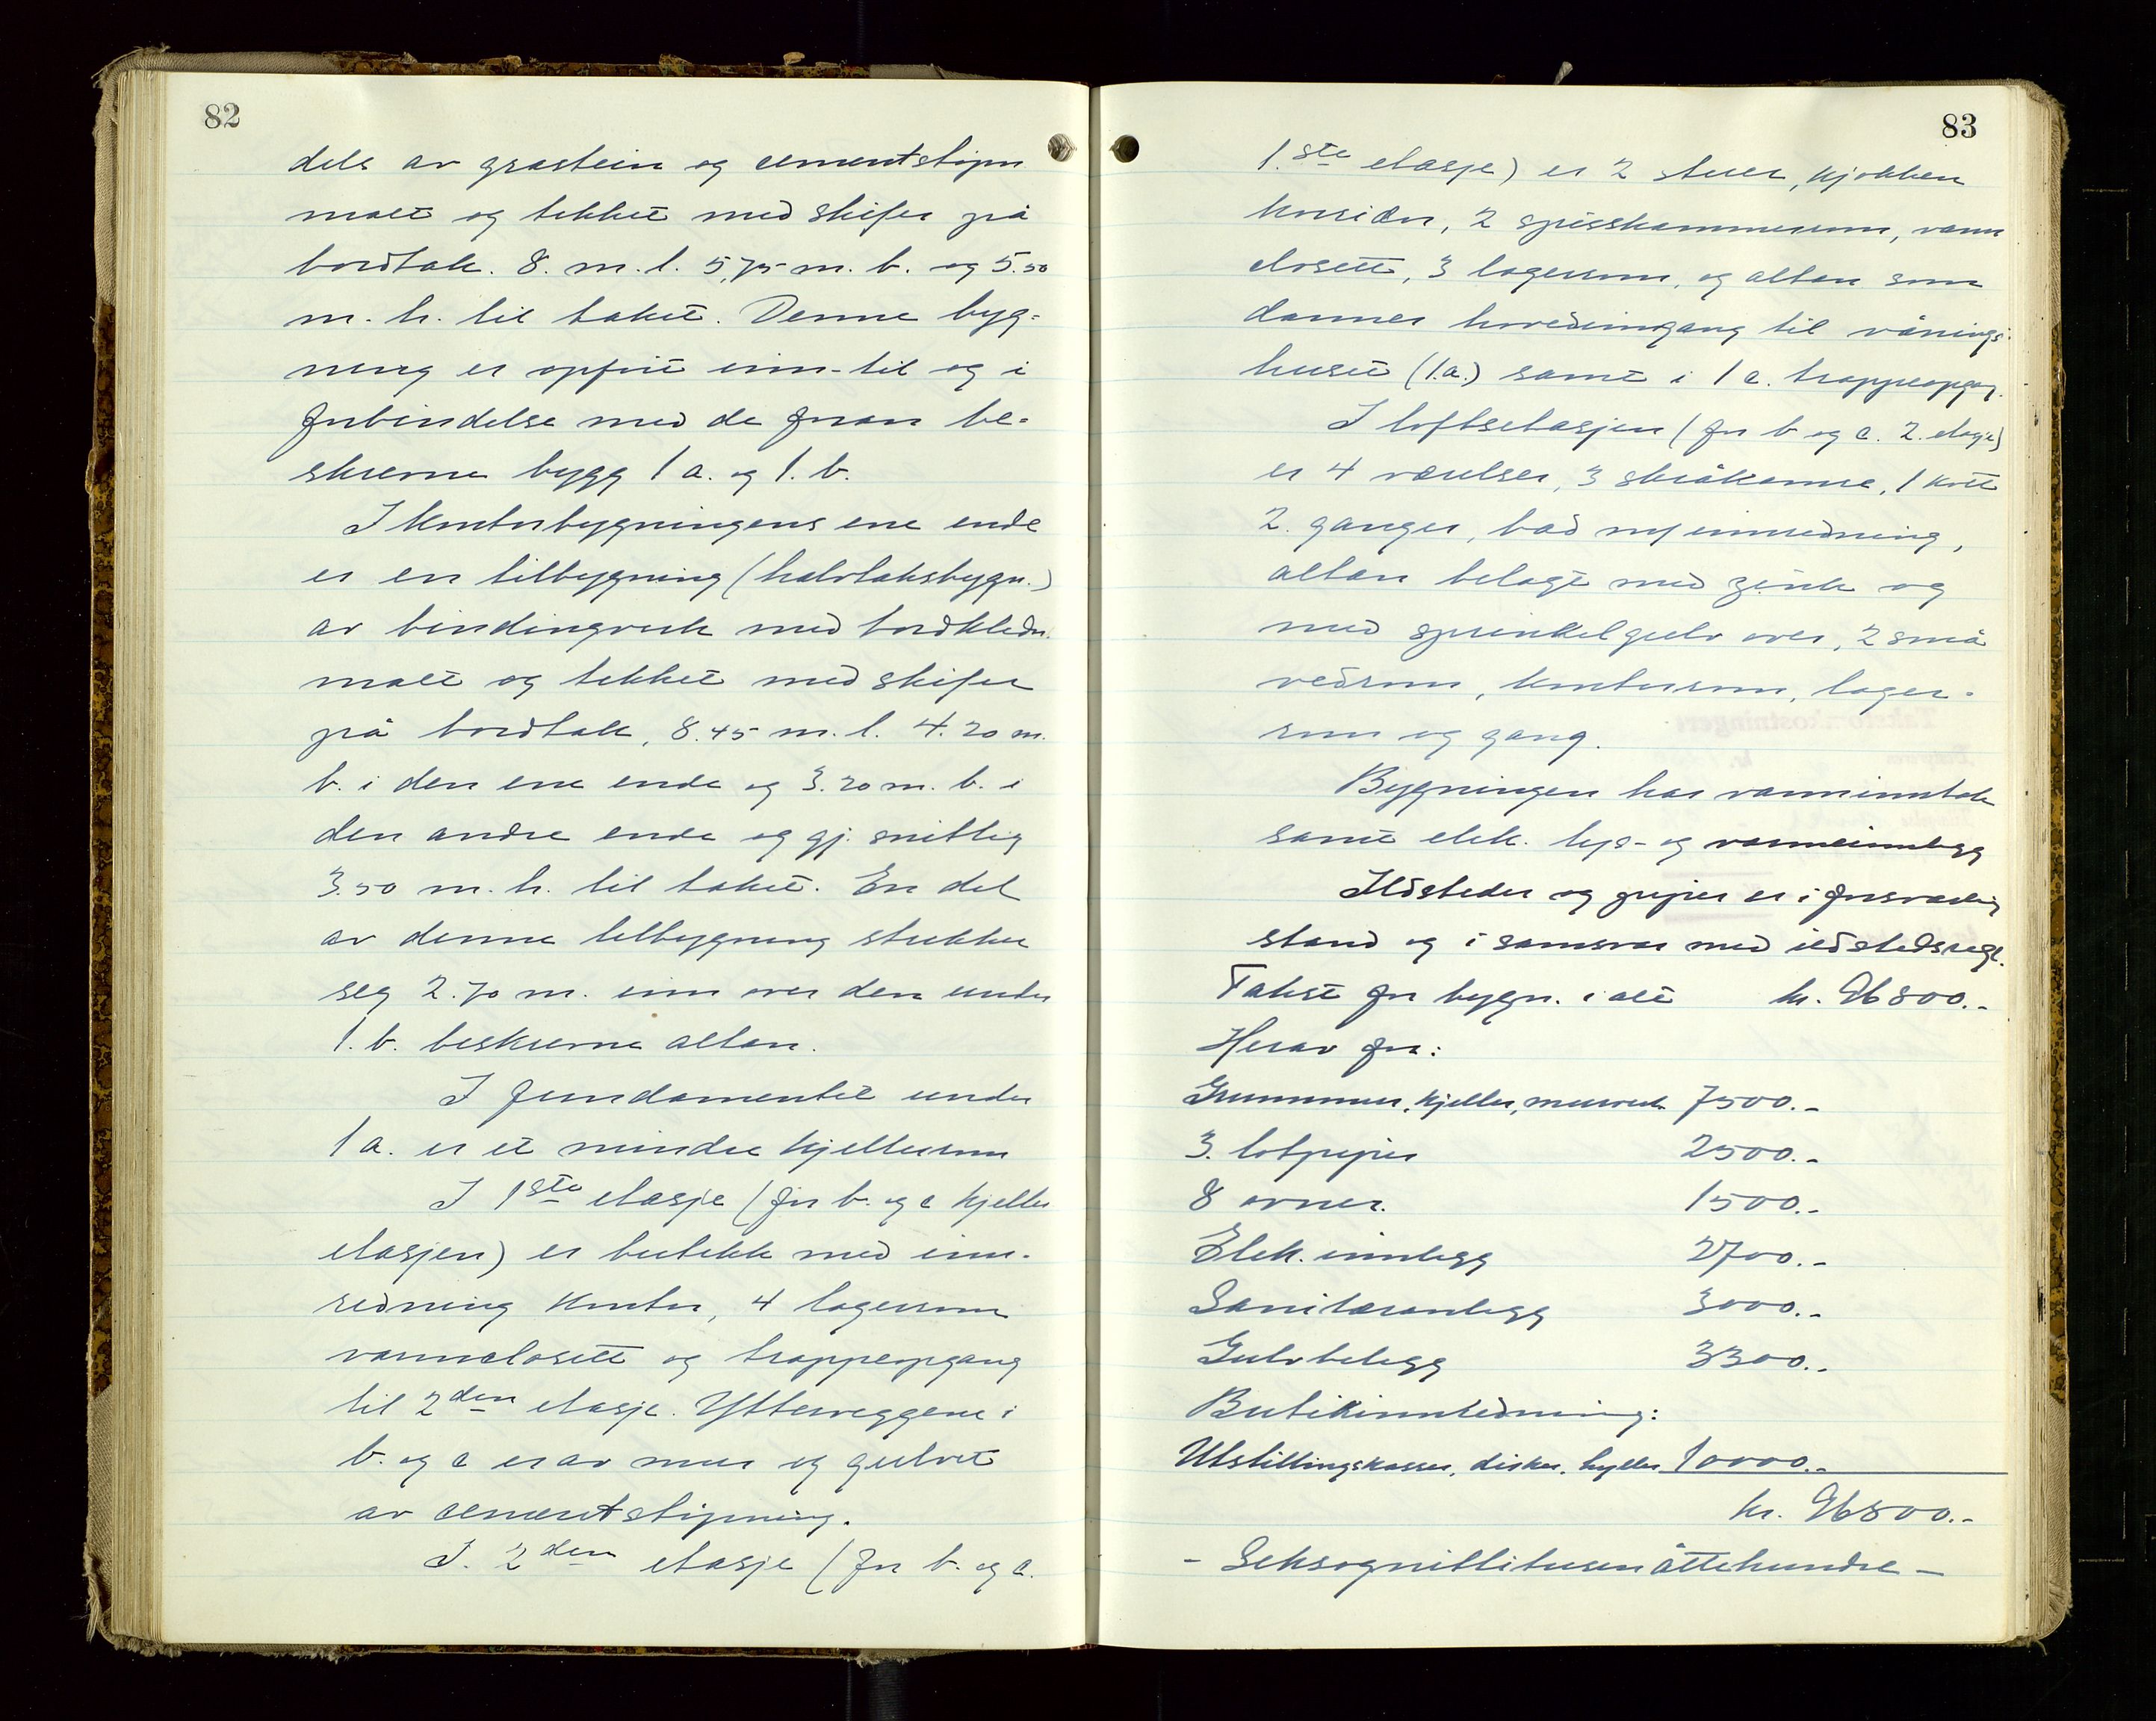 82
dels av gråstein og cementstøpn
malt og tekket med skifer på
bordtak. 8. m. l. 5,75 m. b. og 5.50
m. h. til taket. Denne byg-
ning er opført inn-til og i
forbindelse med de foran be-
skrevne bygg 1 a. og 1. b.
I kontorbygningens ene ende
er en tilbygning (halvtaksbygn.)
av bindingverk med bordkledn.
malt og tekket med skifer
på bordtak, 8.45 m. l. 4.20 m.
b. i den ene ende og 3.20 m. b. i
den andre ende og gj. snittlig
3.50 m. h. til taket. En del
av denne tilbygning strekker
seg 2.70 m. inn over den under
1. b. beskrevne altan.
I fundamentet under
1 a. er et mindre kjellerrom
I 1ste etasje (for b. og c kjeller
etasjen) er butikk med inn-
redning kontor, 4 lagerrom
vannclosett og trappeopgang
til 2den etasje. Ytterveggene i
b. og c er av mur og gulvet
av cementstøpning.
I. 2den etasje (for b. og c.
83
1.ste etasje) er 2 stuer, kjøkken
koridor, 2 spisskammerrom, vann
closett, 3 lagerrom, og altan som
danner hovedinngang til vånings-
huset (1.a.) samt i 1 c. trappeopgang.
I loftsetasjen (for b og c. 2. etasje)
er 4 værelser, 3 skråkamre, 1 kott
2. ganger, bad m/ innredning,
altan belagt med zink og
med sprinkelgulv over, 2 små
vedrom, kontorrom, lager-
rom og gang.
Bygningen har vanninntak
samt elek. lys- og varmeinnlegg
Ildsteder og piper er i forsvarlig
stand og i samsvar med ildstedsregl.
Takst for bygn. i alt kr. 96800.-
Herav for:
Grunnmur, kjeller, murverk 7500.-
3. løtpiper 2500.-
8 ovner. 1500.-
Elek. innlegg 2700.-
Sanitæranlegg 3000.-
Gulvbelegg 3300.-
Butikinnredning:
Utstillingskasser, disker, hyller 10000.-
kr. 96800.-
- Seksognittitusenåttehundre -